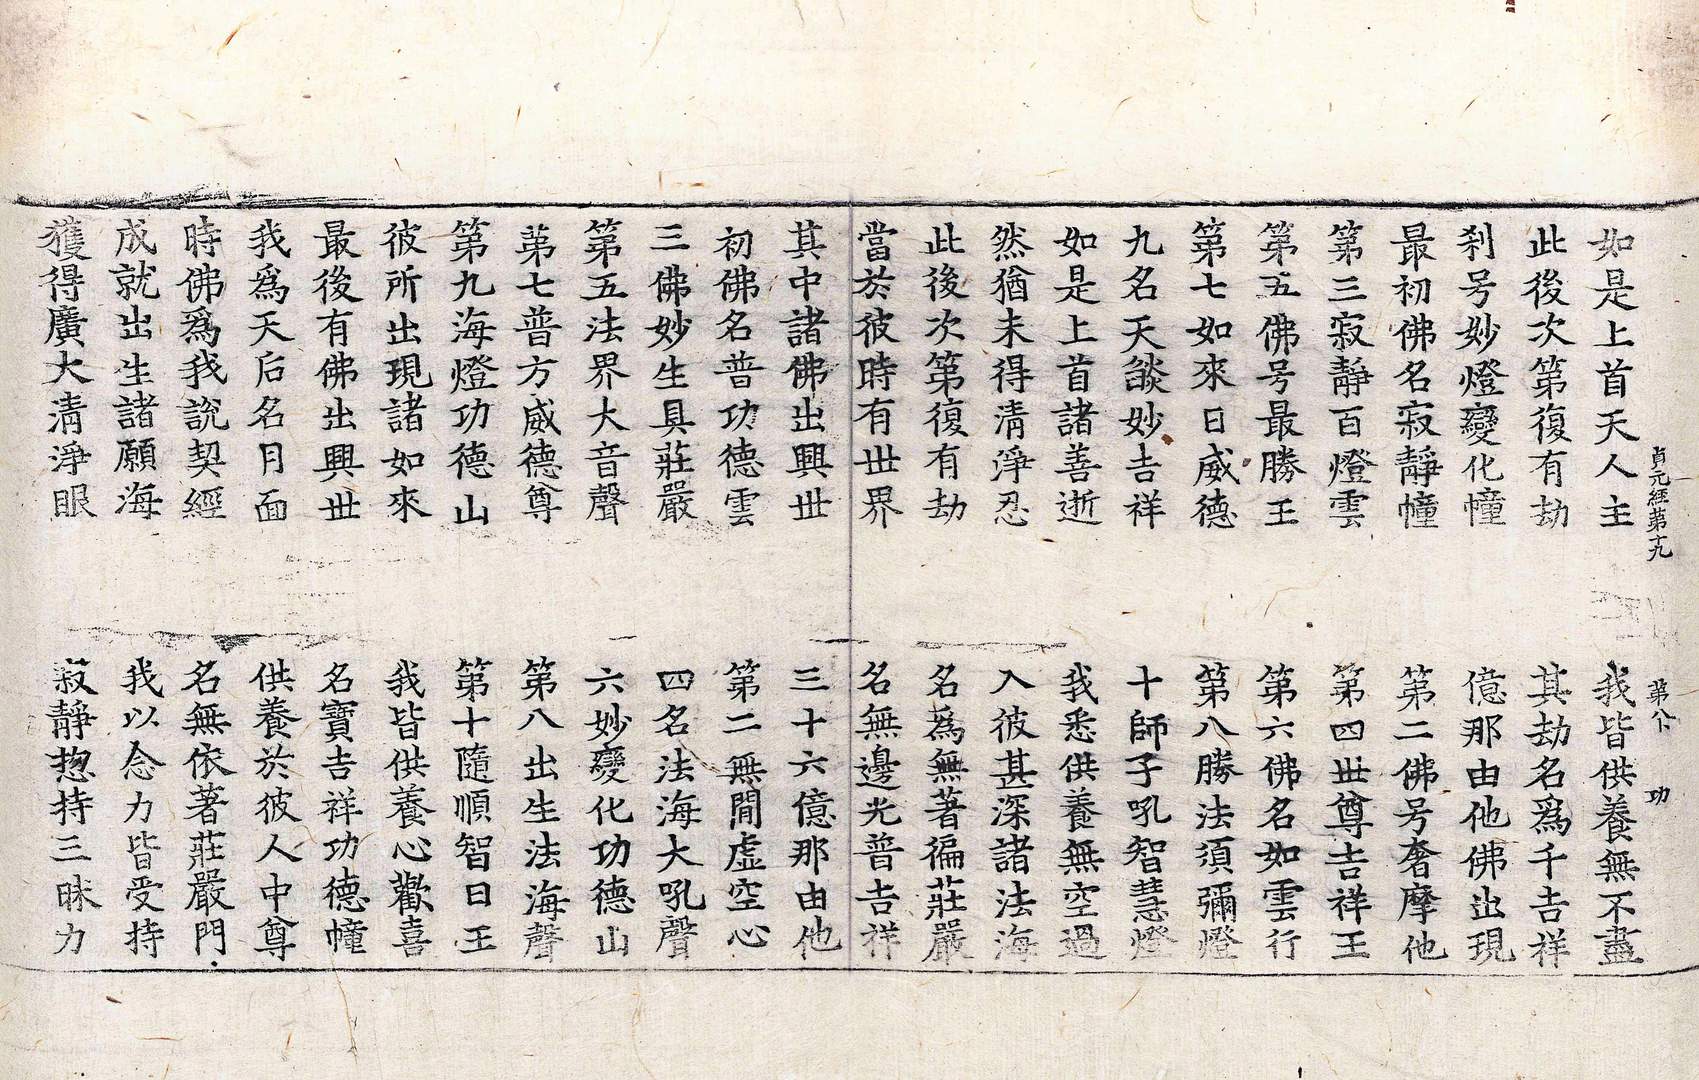 貞元經第十九 第八 功
如是上首天人主 我皆供養無不盡
此後次第復有劫 其劫名爲千吉祥
刹号妙燈變化幢 億那由他佛出現
最初佛名寂靜幢 第二佛号奢摩他
第三寂靜百燈雲 第四世尊吉祥王
第五佛号最勝王 第六佛名如雲行
第七如來日威德 第八勝法須彌燈
九名天燄妙吉祥 十師子吼智慧燈
如是上首諸善逝 我悉供養無空過
然猶未得清淨忍 入彼甚深諸法海
此後次第復有劫 名爲無著徧莊嚴
當於彼時有世界 名無邊光普吉祥
其中諸佛出興世 三十六億那由他
初佛名普功德雲 第二無間虛空心
三佛妙生具莊嚴 四名法海大吼聲
第五法界大音聲 六妙變化功德山
第七普方威德尊 第八出生法海聲
第九海燈功德山 第十隨順智日王
彼所出現諸如來 我皆供養心歡喜
最後有佛出興世 名寶吉祥功德幢
我爲天后名月面 供養於彼人中尊
時佛爲我說契經 名無依著莊嚴門
成就出生諸願海 我以念力皆受持
獲得廣大清淨眼 寂靜揔持三昧力